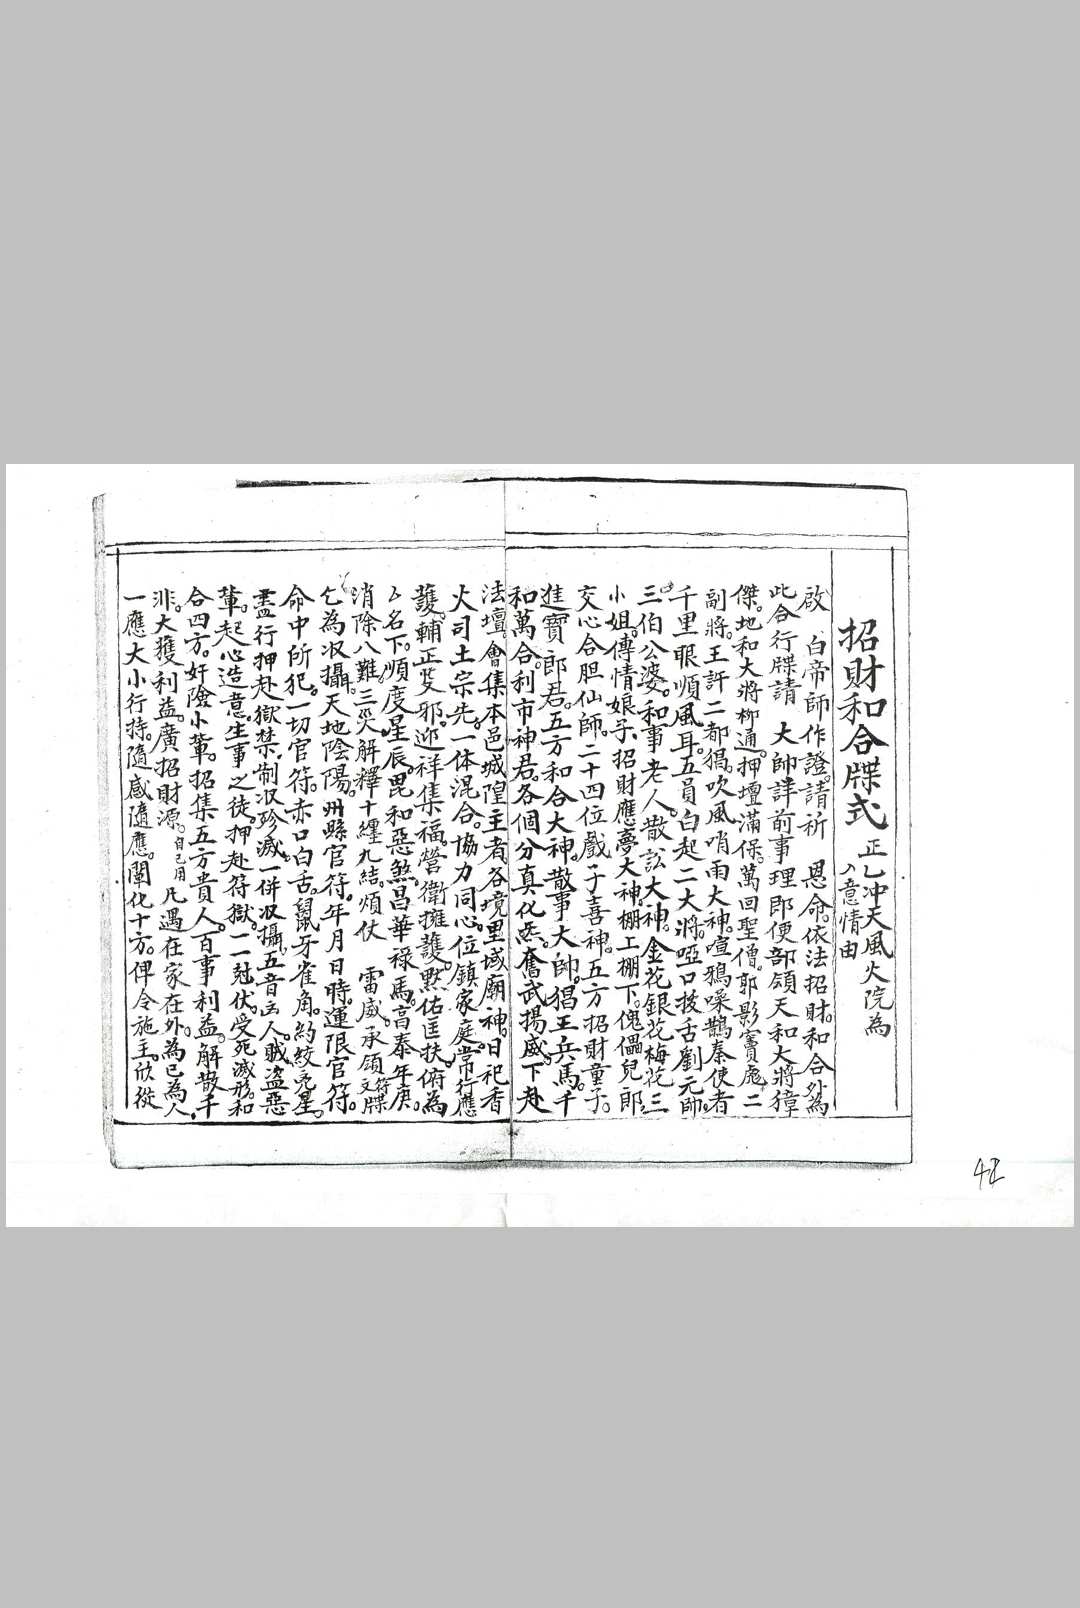 招財和合牒式 正乙冲天風火院為
入意情由
啟 白帝師作證。請祈 恩命。依法招財。和合外為
此合行牒請 大帥詳前事理即便部領天和大將獐
傑。地和大將柳通。押壇滿保。萬回聖僧。郭影竇彪。二
副將。王訐二都猖。吹風哨雨大神。喧鴉噪鵲秦使者
千里眼順風耳。五員白起二大將。啞口披舌劉元帥。
三伯公婆。和事老人。散訟大神。金花銀花梅花三
小姐。傳情娘子。招財應夢大神。棚工棚下。傀儡兒郎。
交心合胆仙師。二十四位戲子喜神。五方招財童子。
進寶郎君。五方和合大神。散事大帥。猖王兵馬。千
和萬合。利市神君。各個分真化炁。奮武揚威。下赴
法壇。會集本邑城隍主者。各境里域廟神。日祀香
火司土宗先。一体混合。協力同心。位鎮家庭。常行應
護。輔正芟邪。迎祥集福。營衛擁護。默佑匡扶。俯為
厶名下。順度星辰。毘和惡煞。昌華祿馬。高泰年庚。
消除八難。三災解釋。十纏九結。煩仗 雷威。承領符牒文
乞為收攝。天地陰陽。州縣官符。年月日時。運限官符。
命中所犯。一切官符。赤口白舌。鼠牙雀角。約絞亮星。
盡行押赴獄禁。制收殄滅。一併收攝。五音出人。賊盜惡
輩。起心造意。生事之徒。押赴符獄。一一尅伏。受死滅形。和
合四方。奸陰小輩。招集五方貴人。百事利益。解散千
非。大獲利益。廣招財源。自己用 凡遇在家在外。為己為人
一應大小行持。隨感隨應。闡化十方。俾令施主。欣從
42